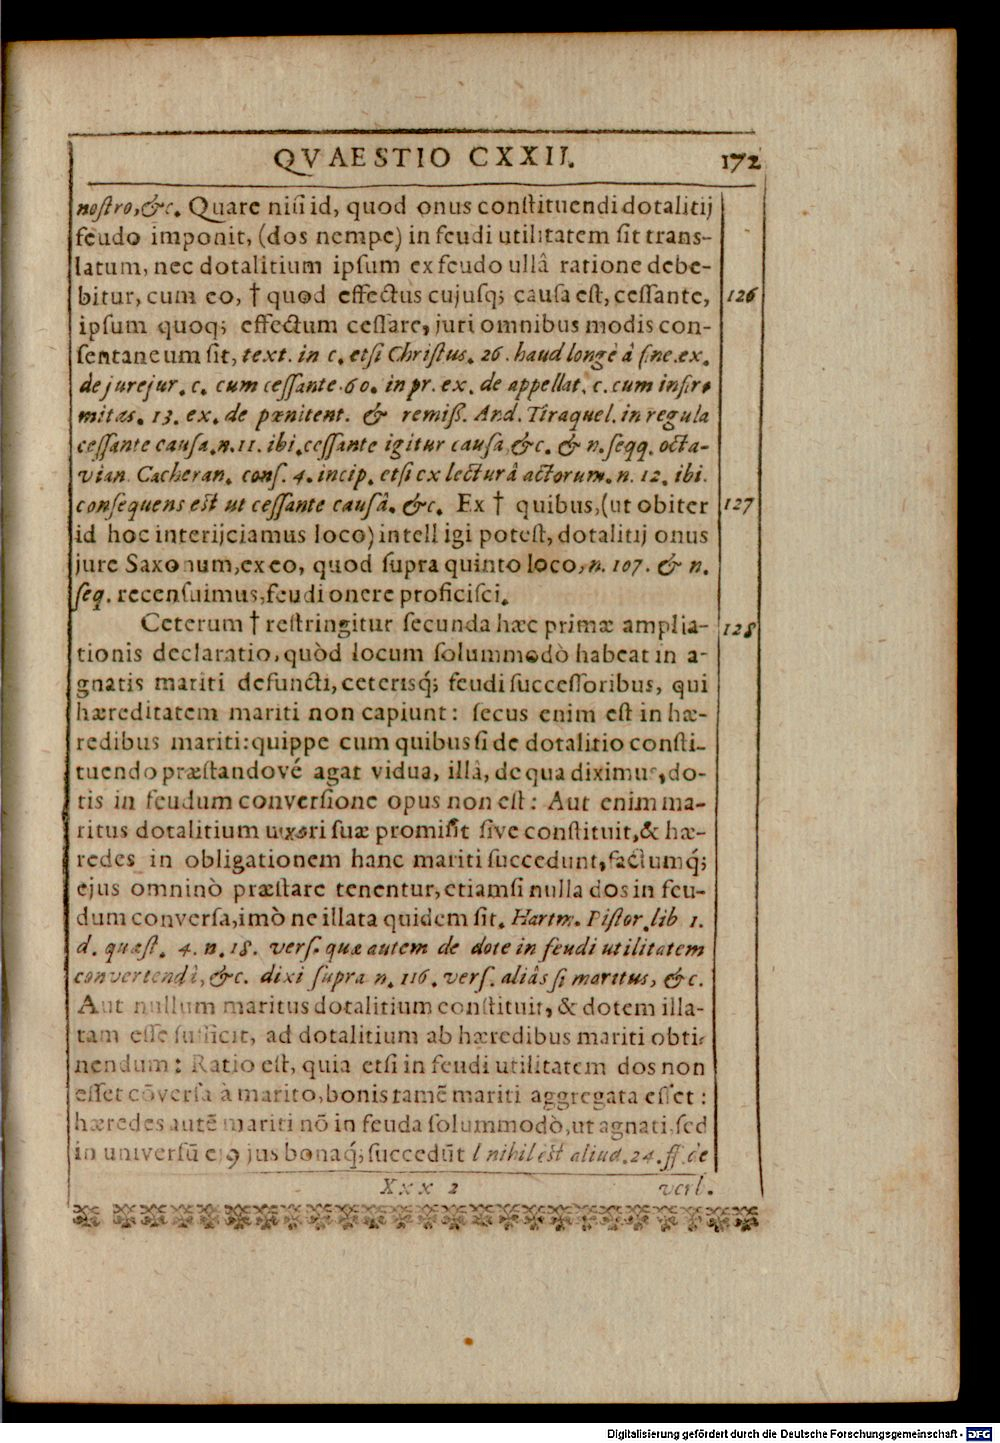 QVAESTIO CXXII. 172
nostro, &c. Quare nisi id, quod onus constituendi dotalitij
feudo imponit, (dos nempe) in feudi utilitatem sit trans-
latum, nec dotalitium ipsum ex feudo ullâ ratione debe-
bitur, cum eo, † quod effectus cujusq; causa est, cessante, 126
ipsum quoq; effectum cessare, juri omnibus modis con-
sentaneum sit, text. in c. etsi Christus. 26. haud longè â fine. ex.
de jurejur. c. cum cessante. 60. in pr. ex. de appellat. c. cum infir-
mitas. 13. ex. de pænitent. & remiß. And. Tiraquel. in regula
cessante causa. n. 11. ibi. cessante igitur causa, &c. & n. seqq. octa-
vian. Cacheran. cons. 4. incip. etsi ex lecturâ actorum. n. 12. ibi.
consequens est ut cessante causâ. &c. Ex † quibus, (ut obiter 127
id hoc interijciamus loco) intelligi potest, dotalitij onus
jure Saxonum, ex eo, quod supra quinto loco, n. 107. & n.
seq. recensuimus, feudi onere proficisci.
Ceterum † restringitur secunda hæc primæ amplia- 128
tionis declaratio, quòd locum solummodò habeat in a-
gnatis mariti defuncti, ceterisq́; feudi successoribus, qui
hæreditatem mariti non capiunt: secus enim est in hæ-
redibus mariti: quippe cum quibus si de dotalitio consti-
tuendo præstandové agat vidua, illâ, de qua diximus, do-
tis in feudum conversione opus non est: Aut enim ma-
ritus dotalitium uxori suæ promisit sive constituit, & hæ-
redes in obligationem hanc mariti succedunt, factumq́;
ejus omninò præstare tenentur, etiamsi nulla dos in feu-
dum conversa, imò ne illata quidem sit. Hartm. Pistor. lib 1.
d. quæst. 4. n. 18. vers. quæ autem de dote in feudi utilitatem
convertendâ, &c. dixi supra n. 116. vers. aliâs si maritus, &c.
Aut nullum maritus dotalitium constituit, & dotem illa-
tam esse sufficit, ad dotalitium ab hæredibus mariti obti-
nendum: Ratio est, quia etsi in feudi utilitatem dos non
esset cōversa à marito, bonis tamē mariti aggregata esset:
hæredes autē mariti nō in feuda solummodò, ut agnati, sed
in universū ejꝰ jus bonaq́; succedūt l nihil est aliud. 24. ff. de
Xxx 2 verb.
Digitalisierung gefördert durch die Deutsche Forschungsgemeinschaft - DFG